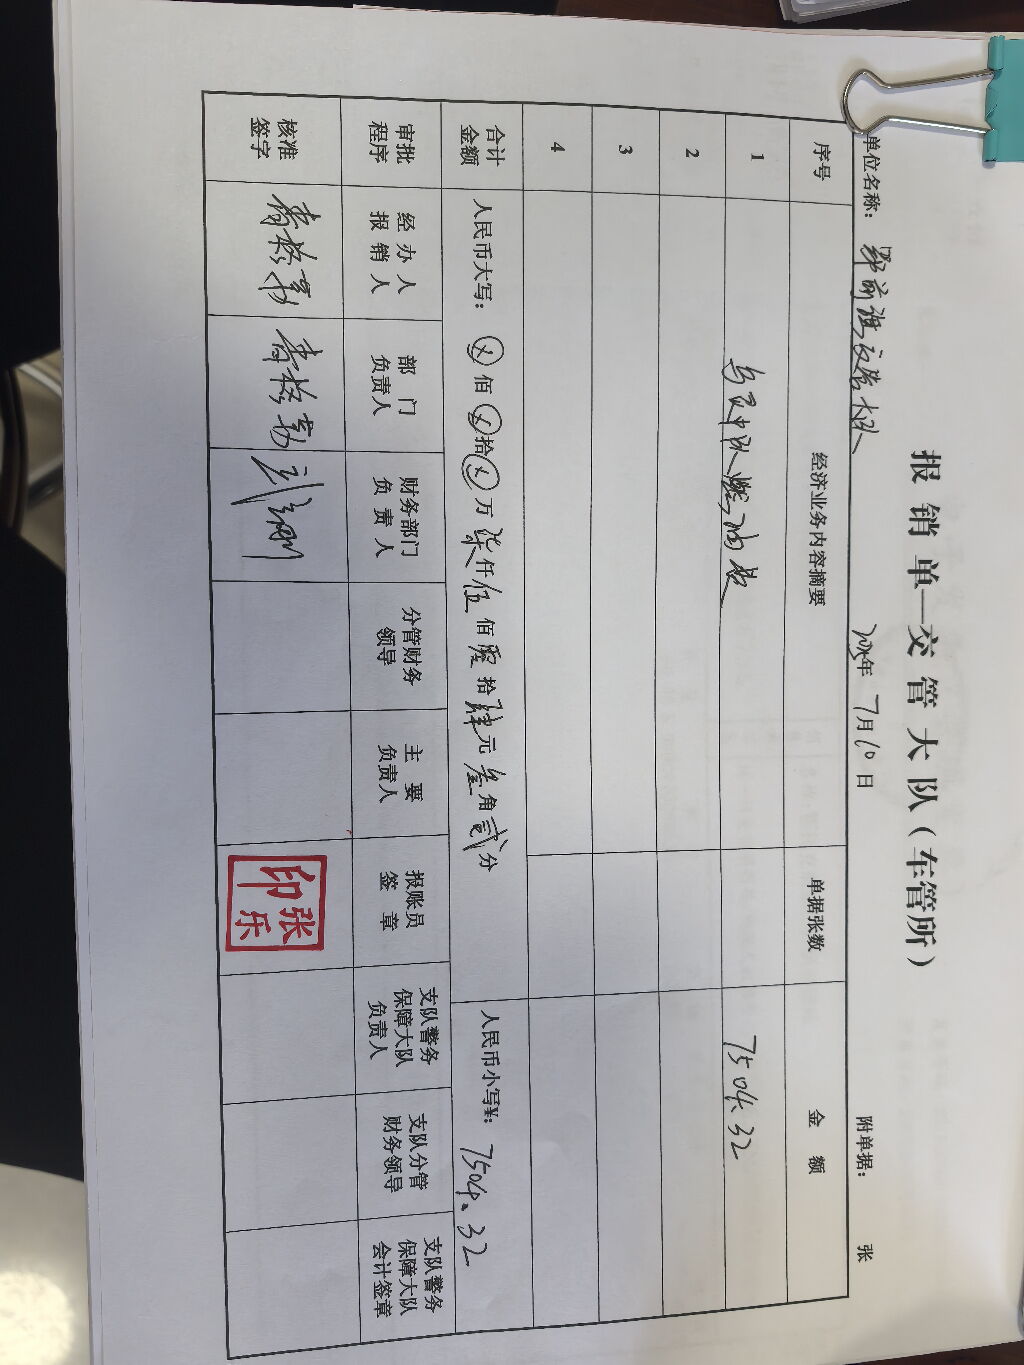 报销单—交管大队（车管所）
单位名称：鄂前旗交管大队 2025年7月10日 附单据： 张
序号 经济业务内容摘要 单据张数 金额
1 中队燃油费 7504.32
2
3
4
合计金额 人民币大写：ⓧ佰ⓧ拾ⓧ万柒仟伍佰零拾肆元叁角贰分 人民币小写¥：7504.32
审批程序 经办人报销人 部门负责人 财务部门负责人 分管财务领导 主要负责人 报账员签章 支队警务保障大队负责人 支队分管财务领导 支队警务保障大队会计签章
核准签字 张乐印